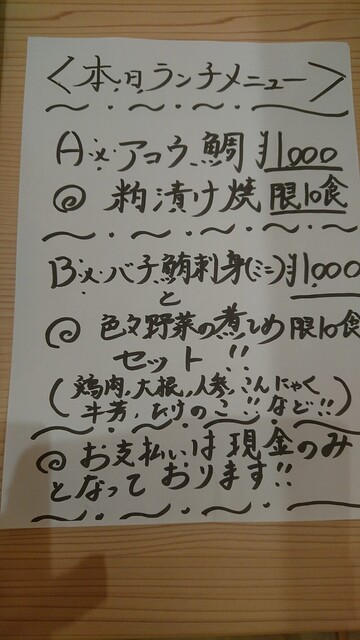 <本日ランチメニュー>
A、アコウ鯛 ¥1000
粕漬け焼 限10食
B、バチ鮪刺身(ミニ) ¥1,000
と
色々野菜の煮しめ 限10食
セット!!
(鶏肉、大根、人参、こんにゃく
牛芳、たけのこ!!など!!)
お支払いは現金のみ
となっております!!